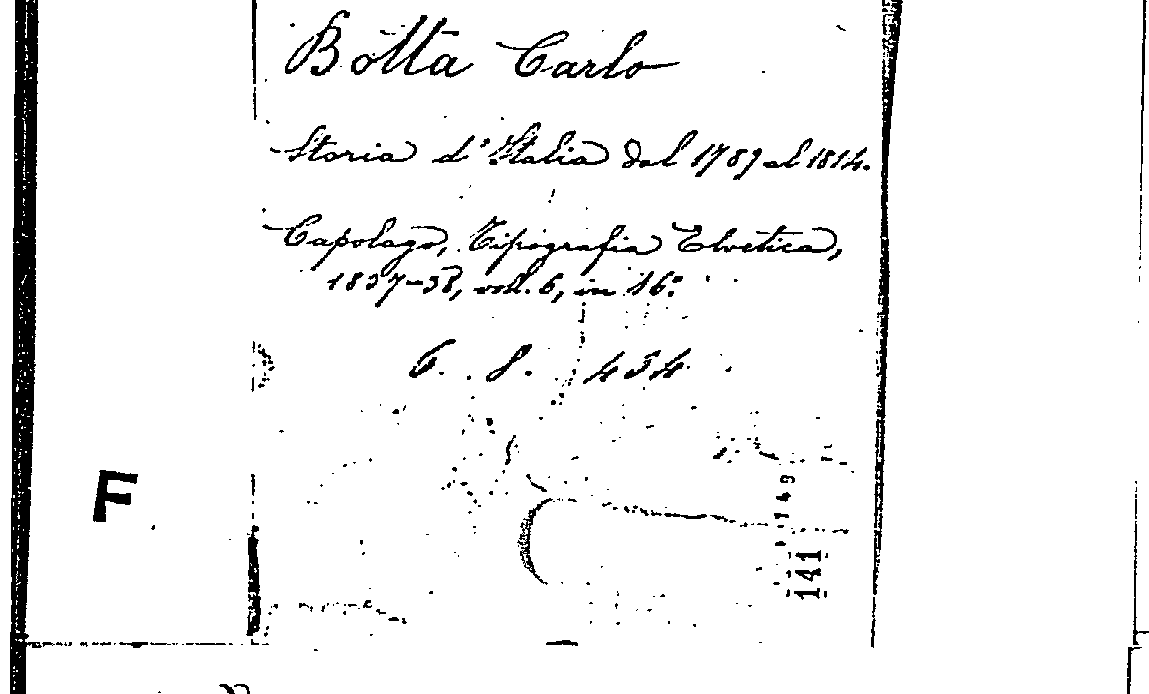 Botta Carlo
Storia d'Italia dal 1789 al 1814.
Capolago, Tipografia Elvetica,
1837-38, voll. 6, in 16º
6. 8. 434
F
141